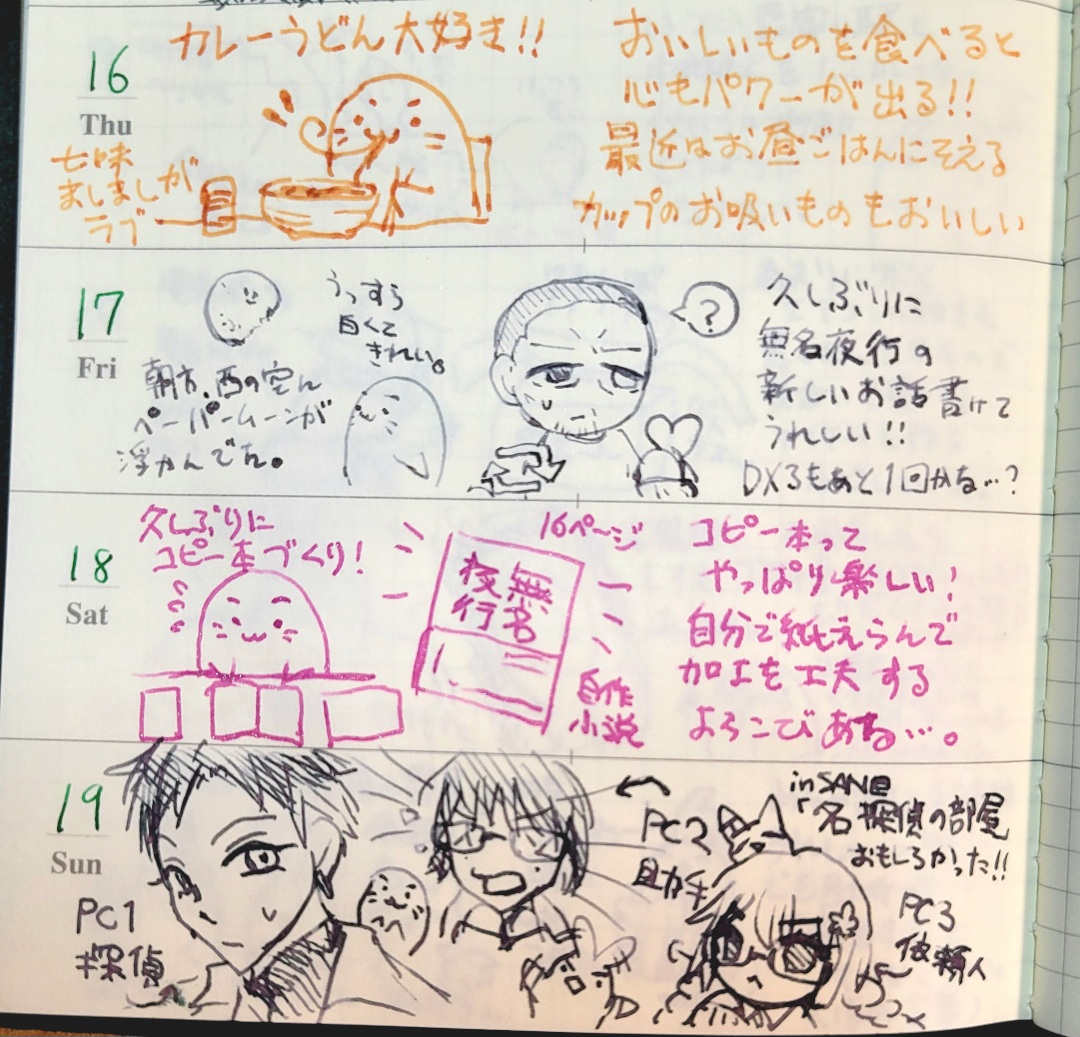 16
Thu
カレーうどん大好き!!
七味
ましましが
ラブ
おいしいものを食べると
心もパワーが出る!!
最近はお昼ごはんにそえる
カップのお吸いものもおいしい
17
Fri
うっすら
白くて
きれい。
朝方、西の空に
ペーパームーンが
浮かんでた。
?
久しぶりに
無名夜行の
新しいお話書けて
うれしい!!
DX3もあと1回かな…?
18
Sat
久しぶりに
コピー本づくり!
16ページ
無名
夜行
自作
小説
コピー本って
やっぱり楽しい!
自分で紙えらんで
加工を工夫する
よろこびある…。
19
Sun
PC1
探偵
PC2
助手
inSANe
「名探偵の部屋
おもしろかった!!
PC3
依頼人